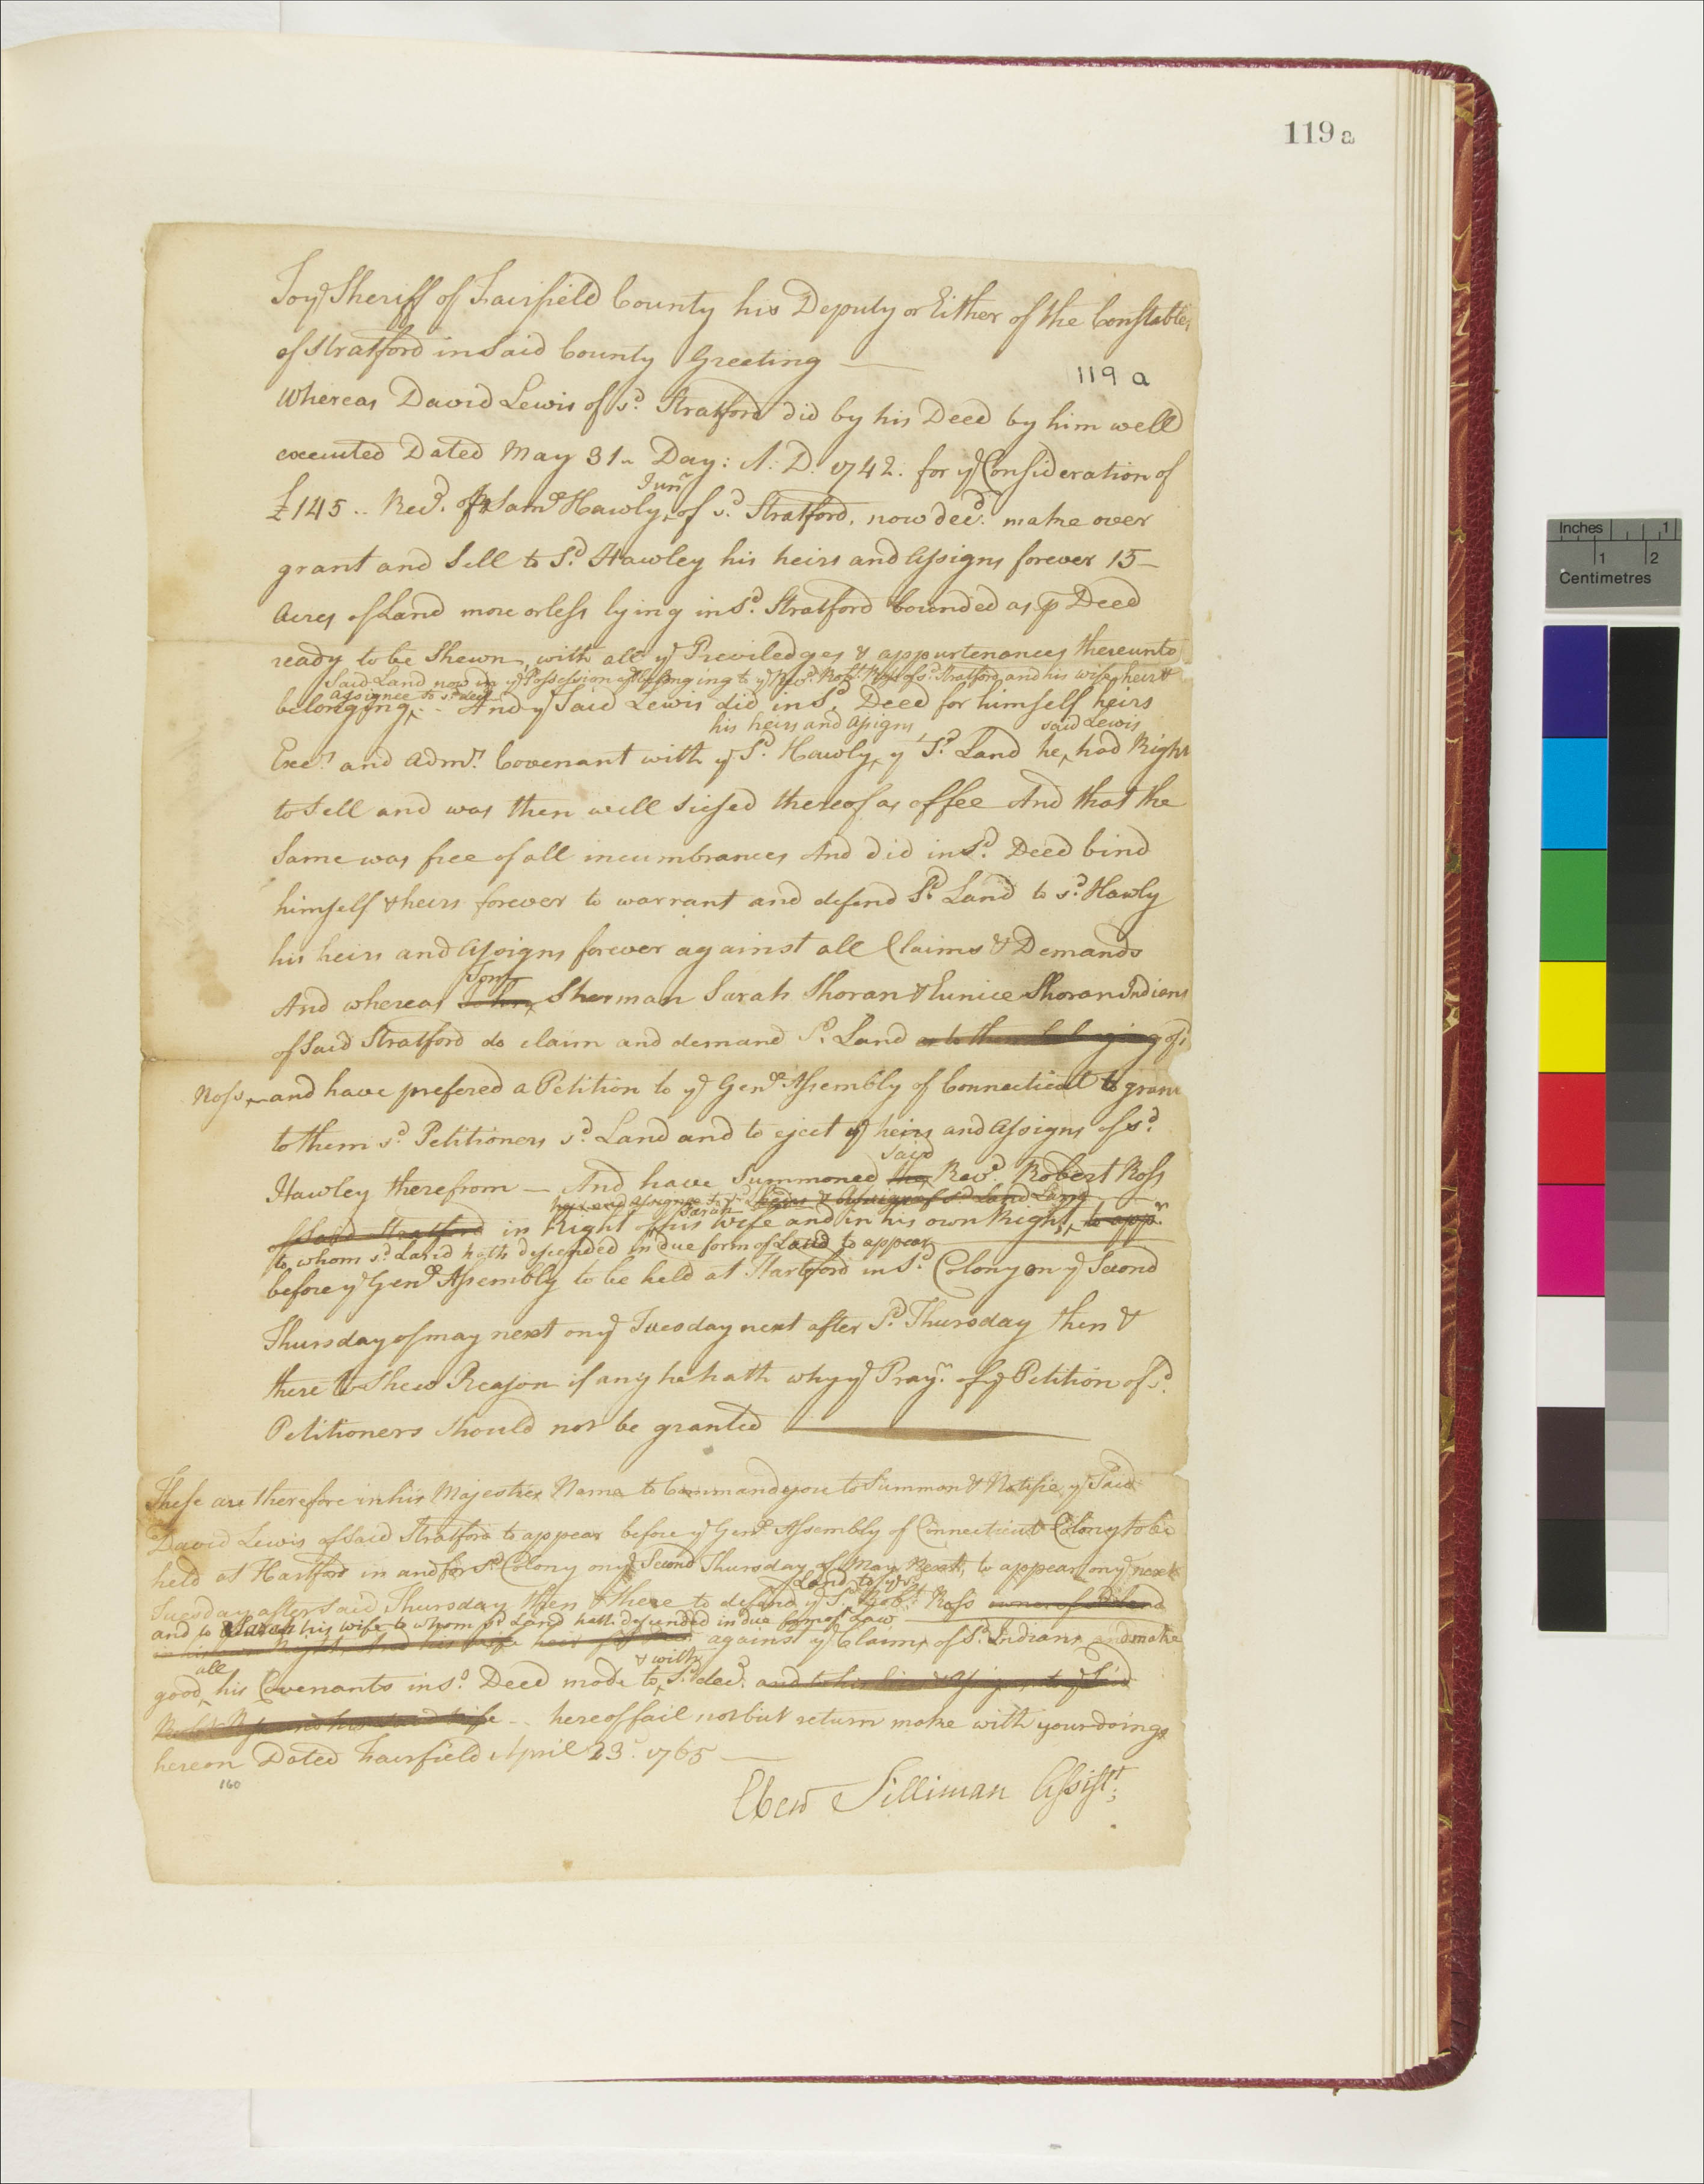 119 a
To ye Sheriff of Fairfield County his Deputy or Either of the Constables
of Stratford in Said County Greeting —
119 a
Whereas David Lewis of sd. Stratford did by his Deed by him well
executed Dated May 31 Day: A: D. 1742. for ye Consideration of
Junr
£145 .. Recd. of Saml Hawly of sd. Stratford, now decd. make over
grant and Sell to Sd. Hawley his heirs and assigns forever 15
Acres of Land more or less lying in Sd. Stratford bounded as p Deed
ready to be Shewn, with all ye Previledges & appurtenances thereunto
Said Land now in ye Possession of & belonging to ye Revd. Robt. Ross of sd. Stratford and his wife heir &
assignee to sd. decd
belonging, .. And ye Said Lewis did in Sd. Deed for himself heirs
his heirs and assigns said Lewis
Exers. and Admrs. Covenant with ye Sd. Hawly, yt Sd. Land he had Right
to Sell and was then well siesed thereof as of fee And that the
Same was free of all incumbrances And did in Sd. Deed bind
himself & heirs forever to warrant and defend Sd. Land to sd. Hawly
his heirs and assigns forever against all Claims & Demands
Tom
And whereas Sherman Sarah Shoran & Eunice Shoran Indians
of Said Stratford do claim and demand Sd. Land or to them belonging of sd
Ross and have prefered a Petition to ye Genll Assembly of Connecticut to grant
to them sd. Petitioners sd. Land and to eject ye heirs and assigns of sd.
said
Hawley therefrom — And have Summoned the Revd. Robert Ross
heir and assignee to sd heirs & assigns of sd. land
Sarah
of said Stratford in Right of his wife and in his own Right, to appr.
to whom sd. Land hath descended in due form of Law to appear
before ye Genll Assembly to be held at Hartford in Sd. Colony on ye Second
Thursday of may next on ye Tuesday next after Sd. Thursday then &
there to Shew Reason if any he hath why ye Prayr. of ye Petition of sd.
Petitioners Should not be granted
These are therefore in his Majesties Name to Command you to Summon & Notifie ye Said
David Lewis of Said Stratford to appear before ye Genll. Assembly of Connecticut Colony to be
held at Hartford in and for Sd. Colony on ye Second Thursday of May Next, to appear on ye next
Land to ye sd.
Tuesday after Said Thursday then & there to defend ye Sd. Robt. Ross owner of sd land
and to Sarah his wife to whom sd Land hath descended in due form of Law
in his own Right, And his wife heir against ye Claims of Sd. Indians and make
all & with
good his Covenants in sd. Deed made to Sd. decd. and to his heirs & assigns to ye said
Robt. Ross and his said wife .. hereof fail not but return make with your doings
hereon Dated Fairfield April 23d. 1765
160
Ebenr Silliman Assistt.